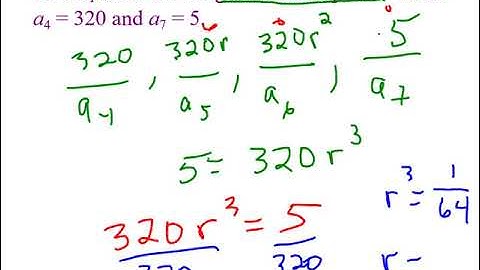 a₄ = 320 and a₇ = 5
320/a₄ , 320r/a₅ , 320r²/a₆ , 5/a₇
5 = 320r³
r³ = 1/64
320r³ = 5
320 320
r =